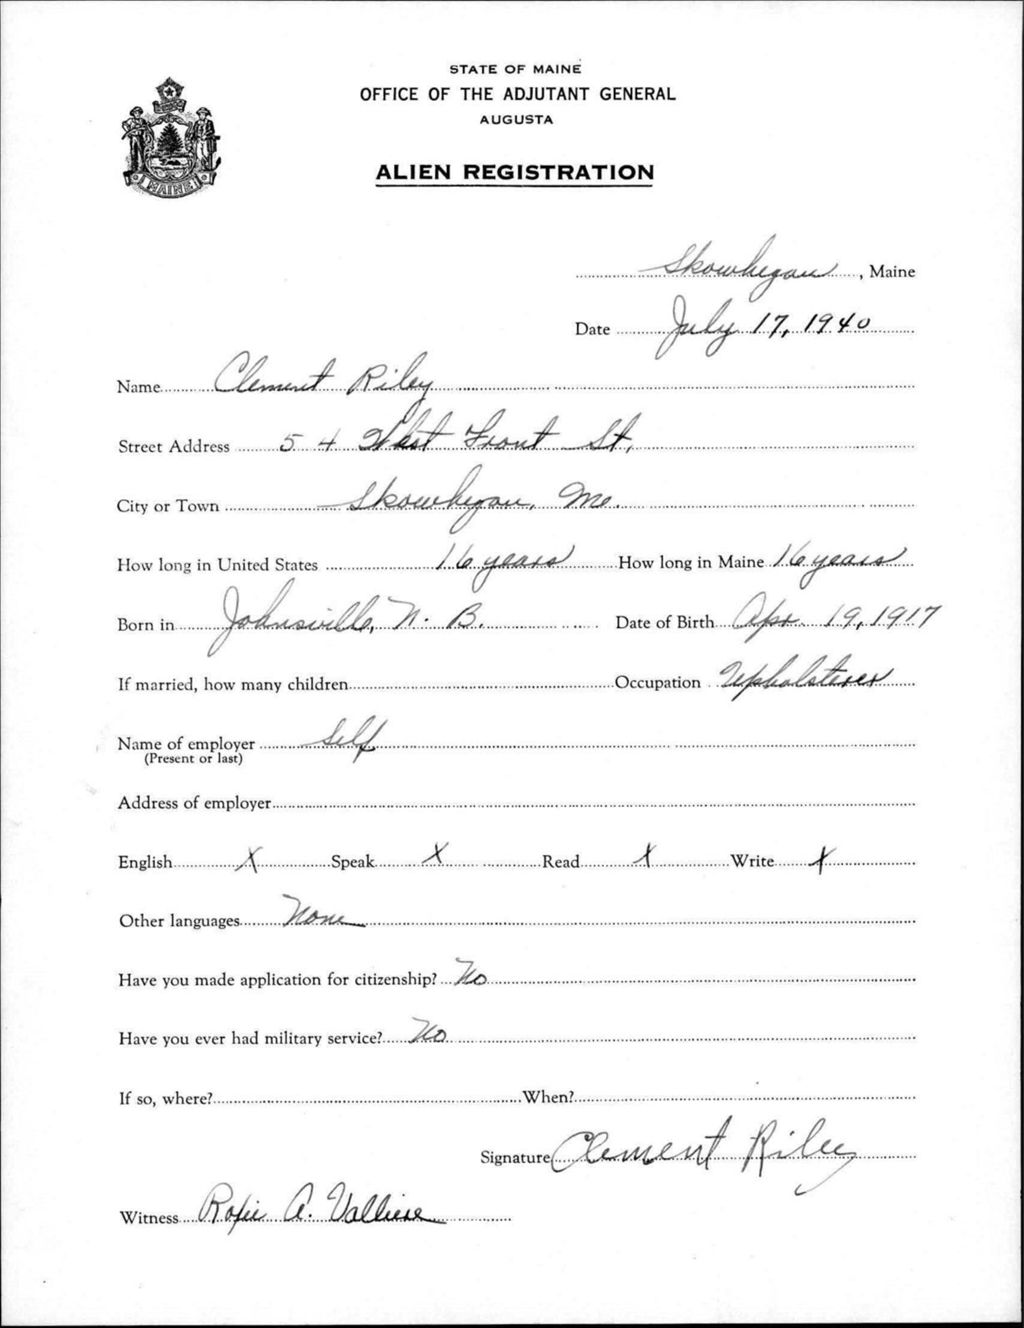 STATE OF MAINE
OFFICE OF THE ADJUTANT GENERAL
AUGUSTA
ALIEN REGISTRATION
MAINE
Skowhegan, Maine
Date July 17, 1940
Name Clement Riley
Street Address 54 West Front St,
City or Town Skowhegan, Me.
How long in United States 16 years How long in Maine 16 years
Born in Johnsville, N. B. Date of Birth Apr. 19, 1917
If married, how many children Occupation Upholsterer
Name of employer Self
(Present or last)
Address of employer
English X Speak X Read X Write X
Other languages None
Have you made application for citizenship? No
Have you ever had military service? No
If so, where? When?
Signature Clement Riley
Witness A. Valliere